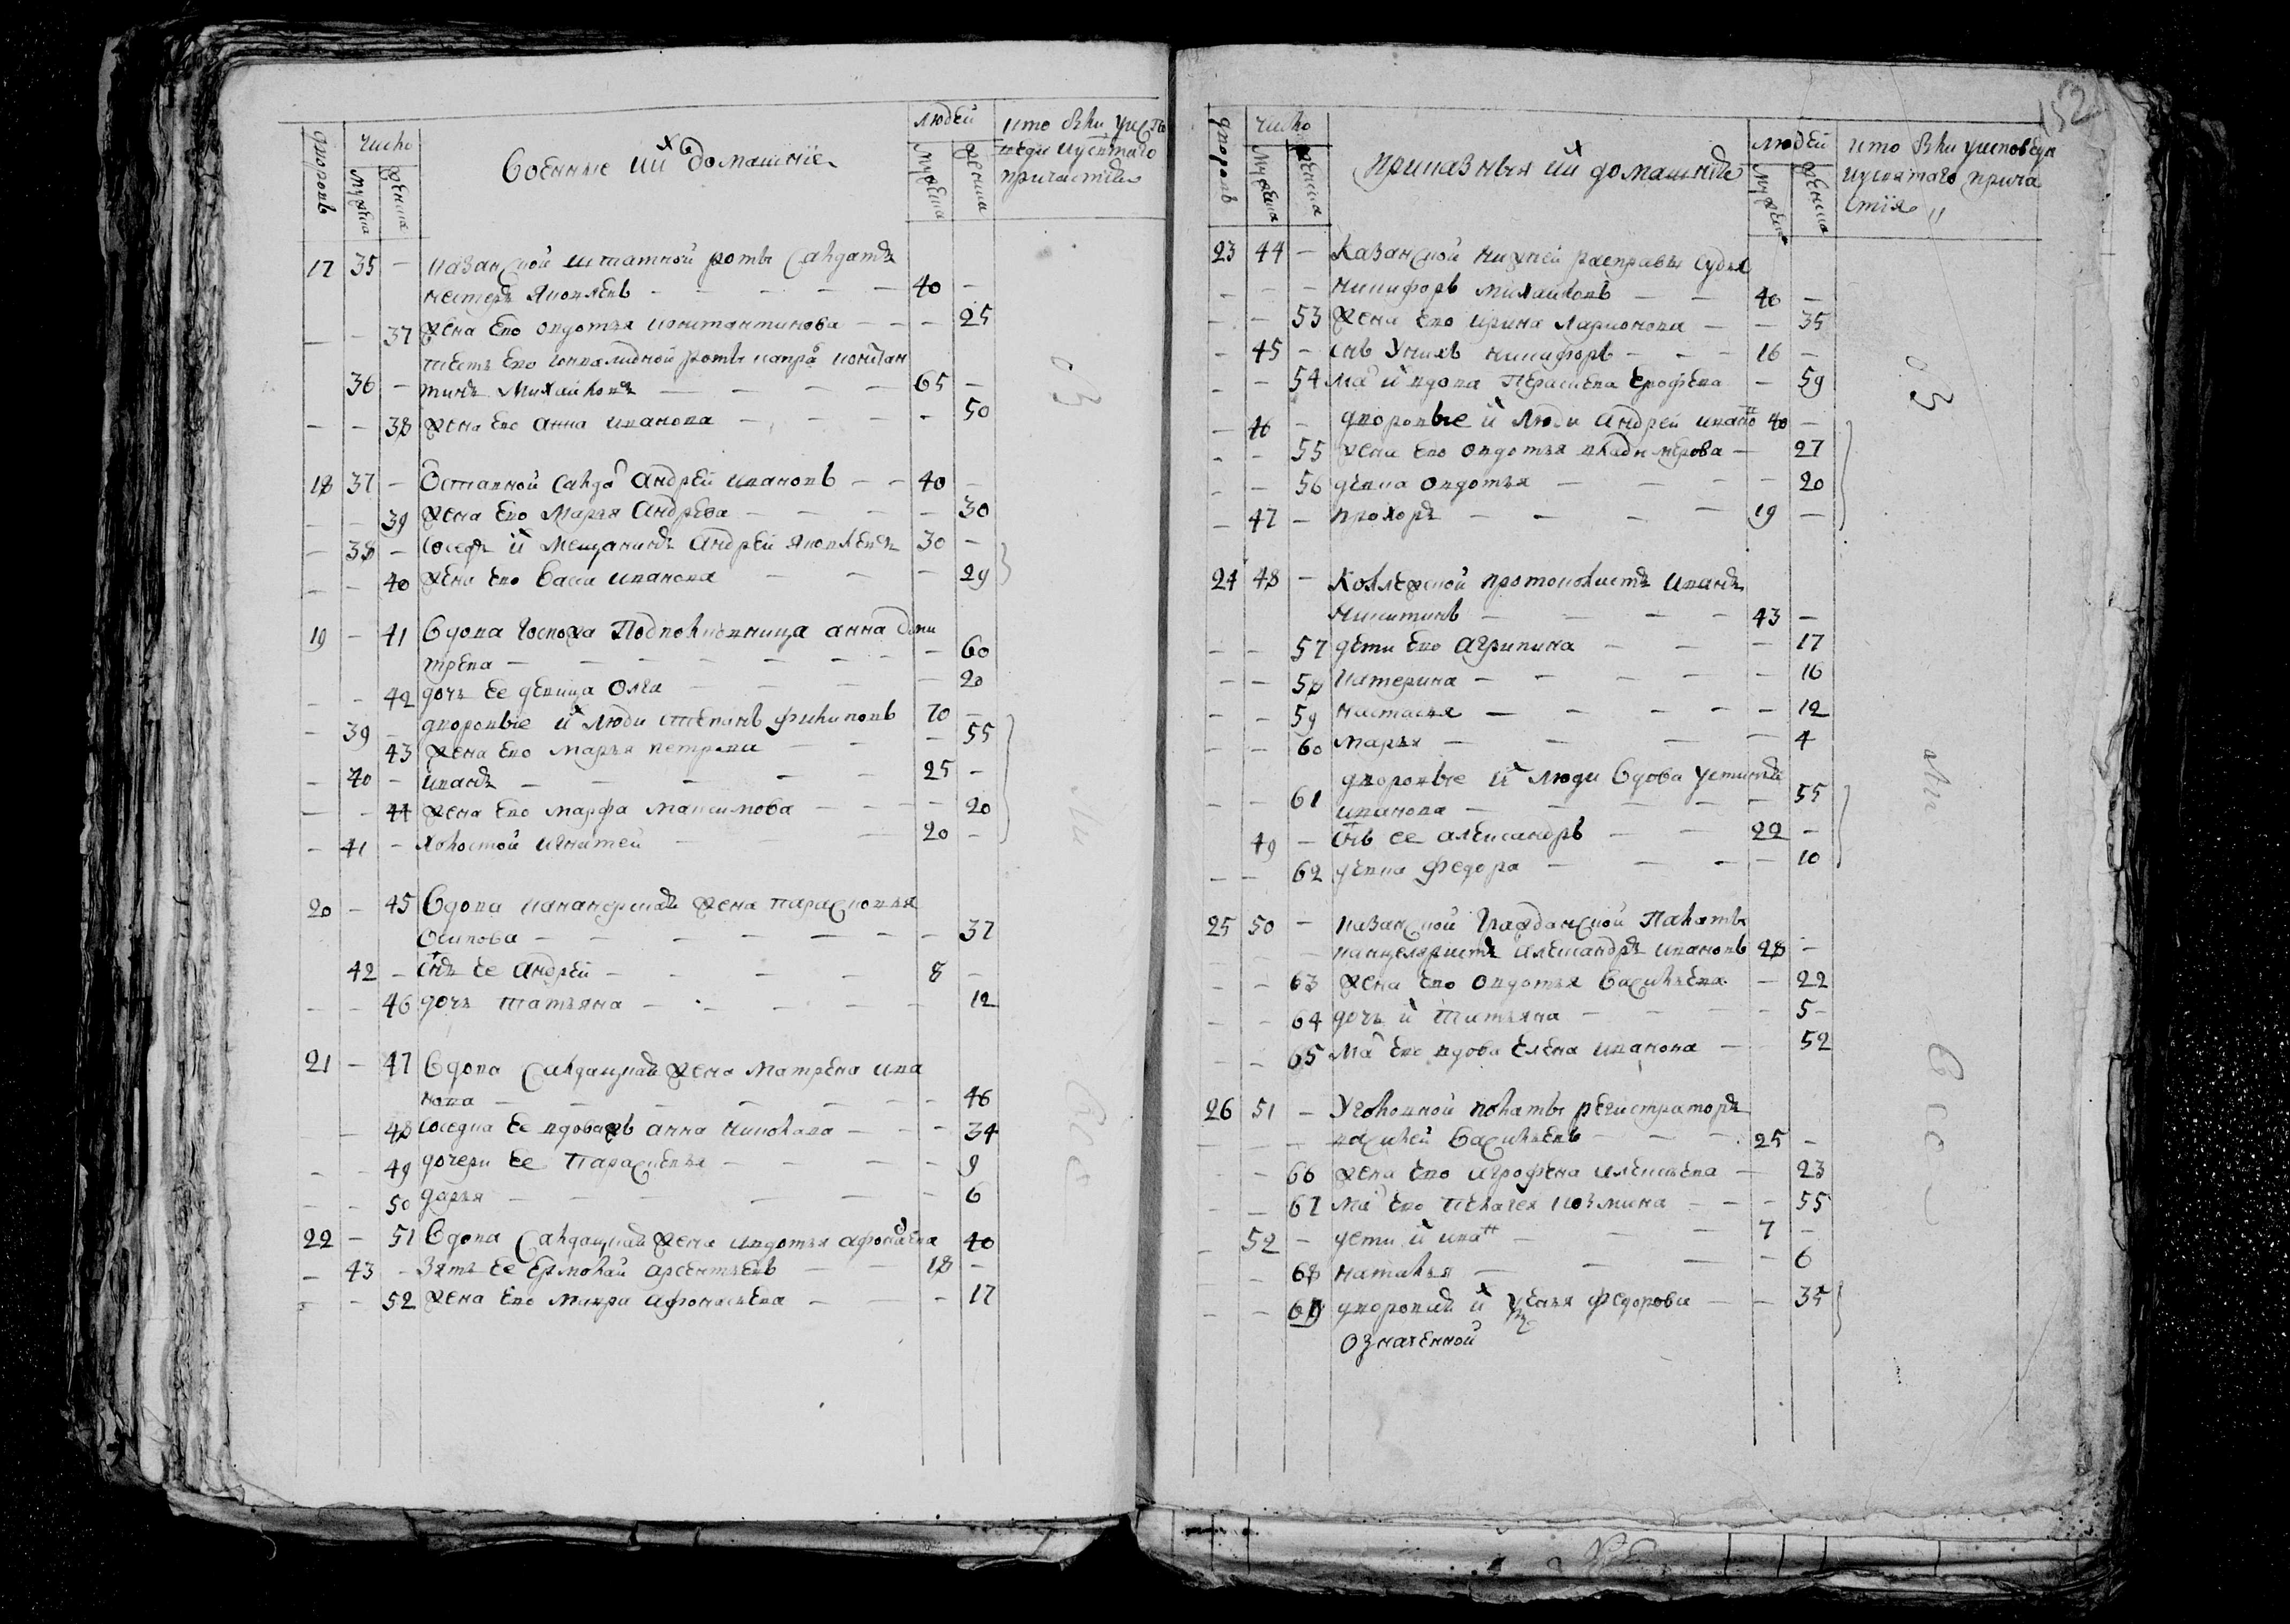 дворовъ
Число
мужеска
женска
Военные ихъ домашнїе
людей
мужеска
женска
кто были у испо
веди и святаго
причастия
17 35 – казанской штатной роты салдатъ
нестеръ яковлевъ – 40 –
– – 37 жена ево авдотья констентинова – 25
тесть ево инвалидной роты капра констан
36 – тинъ михайловъ – 65 –
– – 38 жена ево анна иванова – 50
18 37 – Отставной салда андрей ивановъ – 40 –
– – 39 жена ево марья андрева – 30
– 38 – соседъ их мещанинъ андрей яковлевъ 30 –
– – 40 жена ево васса иванова – 29
19 – 41 Вдова госпожа Подполковница анна дми
трева – 60
– – 42 дочь ее девица олга – 20
– 39 – дворовые их люди степанъ филиповъ 70 –
43 жена ево марья петрова – 55
– 40 – иванъ – 25 –
– – 44 жена ево марфа максимова – 20
– 41 – холостой игнатей – 20 –
20 – 45 Вдова канонерская жена парасковья
осипова – 37
42 – снъ ее андрей – 8 –
– – 46 дочь татьяна – 12
21 – 47 Вдова салдацкая жена матрена ива
нова – 46
– 48 соседка ее вдова анна николава – 34
– – 49 дочери ее Парасковья – 9
– – 50 дарья – 6
22 – 51 Вдова салдацкая жена авдотья афонасева 40
– 43 – зять ее ермолай арсентьевъ – 18 –
– – 52 жена ево мавра афонасьева – 17
152
дворовъ
Число
мужеска
женска
приказныя ихъ домашнїе
людей
мужеска
женска
кто были у исповеди
и святаго прича
стїя
23 44 – Казанской нижней расправы судья
никифоръ михайловъ – 40 –
– – 53 жена ево ирина ларионова – 35
– 45 – снъ у нихъ никифоръ – 16 –
– – 54 ма их вдова Парасковья ерофева – 59
– 46 – дворовые их люди андрей ивано 40 –
– – 55 жена ево авдотья владимерова – 27
– – 56 девка авдотья – 20
– 47 – прохоръ – 19 –
24 48 – Коллежской протоколистъ иванъ
никитинъ – 43 –
– – 57 дети ево агрипина – 17
– – 58 катерина – 16
– – 59 настасья – 12
– – 60 марья – 4
дворовые их люди вдова устинья
– – 61 иванова – 55
49 – снъ ее александръ – 22 –
– – 62 девка федора – 10
25 50 – казанской гражданской Палаты
канцеляристъ александръ ивановъ 28 –
– – 63 жена ево авдотья васильева – 22
– – 64 дочь их татьяна – 5
– – 65 ма ево вдова елена иванова – 52
26 51 – уголовной полаты регистраторъ
василей васильевъ – 25 –
– – 66 жена ево аграфена алексеева – 23
– – 67 ма ево Пелагея козмина – 55
– 52 – дети их ива – 7 –
– – 68 наталья – 6
– – 69 дворовая их федорова – 35
означенной